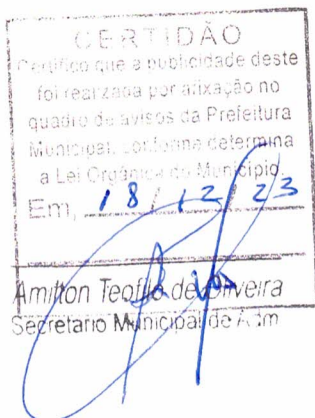 CERTIDÃO
Certifico que a publicidade deste
foi realizada por afixação no
quadro de avisos da Prefeitura
Municipal, conforme determina
a Lei Orgânica do Município
Em, 18 / 12 / 23
Amilton Teofilo de Oliveira
Secretario Municipal de Adm